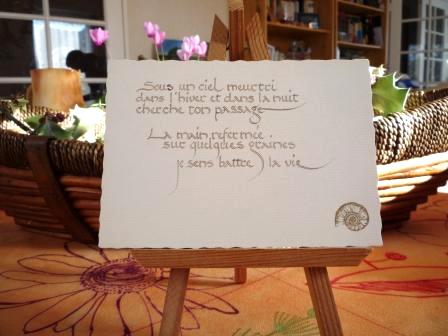 Sous un ciel meurtri
dans l'hiver et dans la nuit
cherche ton passage
La main, refermée
sur quelques graines
je sens battre la vie